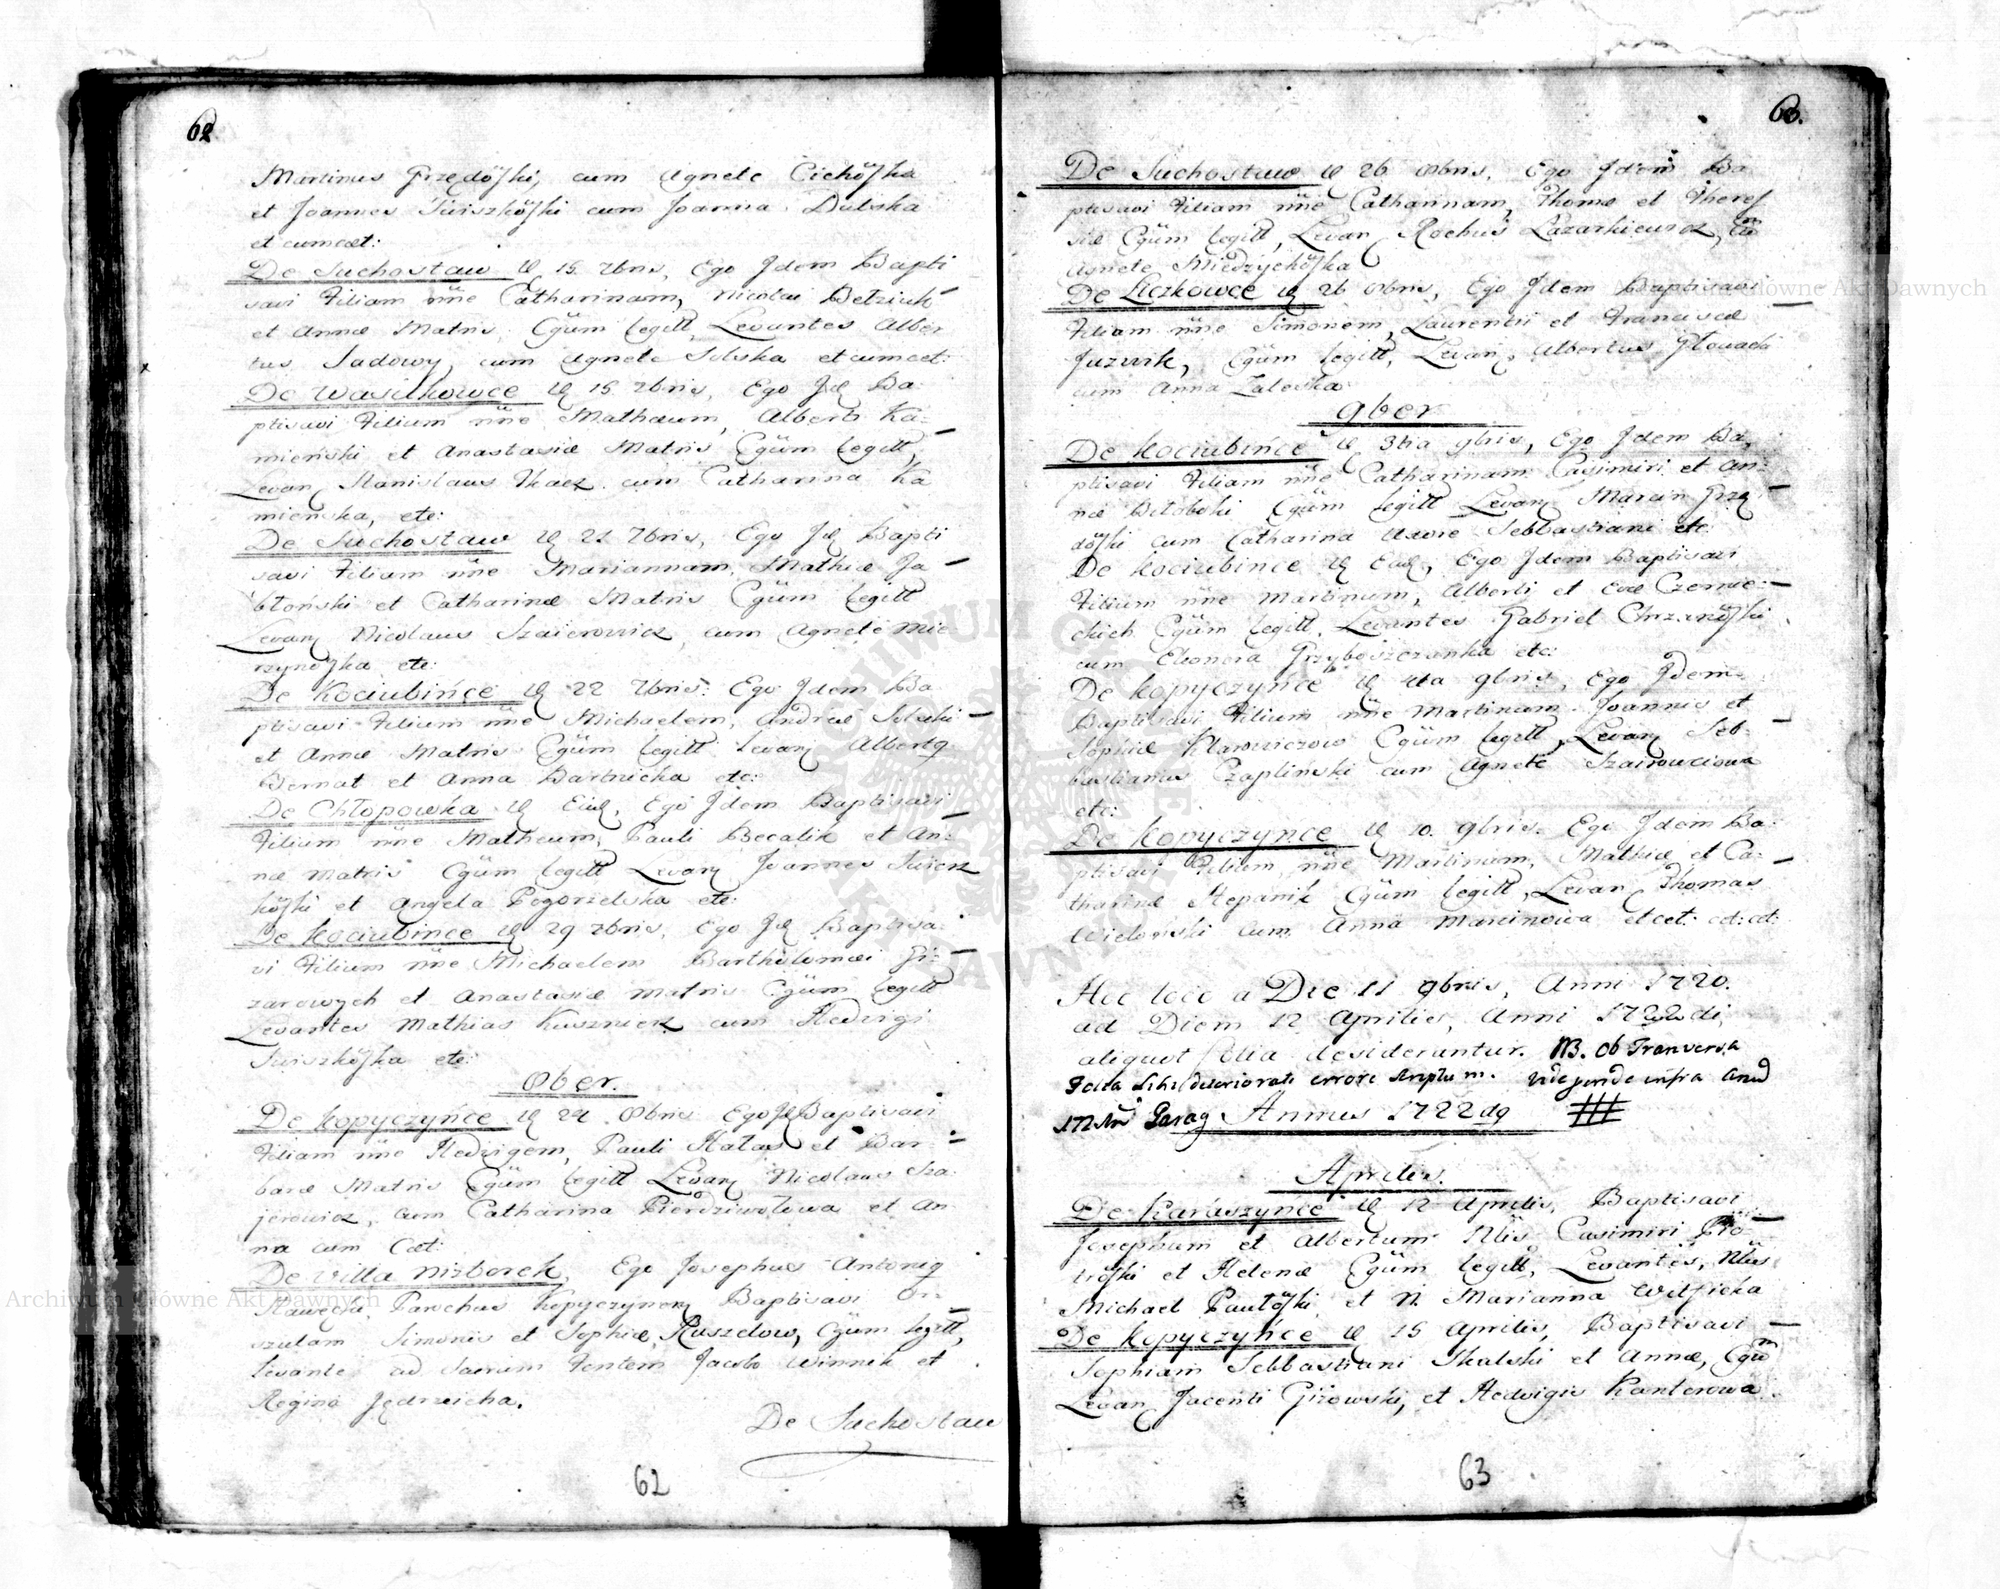 62
Martinus Grzędôſki, cum Agnete Cichôſka
et Joannes Swiszkôſki cum Joanna Dulska
et cum cæt:
De Suchostaw 15. 7bris, Ego Jdem Bapti
savi Filiam nn̄e Catharinam, Nicolai Betziuk
et Annæ Matris, Cgūm legitt, Levantes Alber
tus Sadowy cum Agnete Solska et cum cæt:
De Wasilkowce 15 7bris, Ego Jd Ba
ptisavi Filium nn̄e Mathæum, Alberti Ka-
mieński et Anastasiæ Matris Cgūm legitt,
Levan Stanislaus Tkacz cum Catharina Ka
mieńska, etc:
De Suchostaw 21 7bris, Ego Jd Bapti
savi Filiam nn̄e Mariannam, Mathiæ Ja
błoński et Catharinæ Matris Cgūm legitt
Levan Nicolaus Szaierowicz, cum Agnete Mie
rzyńôſka etc:
De Kociubińce 22 7bris: Ego Jdem Ba
ptisavi Filium nn̄e Michaelem, Andreæ Solski
et Annæ Matris Cgūm legitt Levan Albertq
Bernat et Anna Bartnicka etc:
De Chłopowka Ead, Ego Jdem Baptisavi
Filium nn̄e Matheum, Pauli Becalik et An-
næ Matris Cgūm legitt Levan Joannes Swisz
kôſki et Angela Pogorzelska etc:
De Kociubince 29 7bris, Ego Jd Baptisa
vi Filium nn̄e Michaelem Bartholomæi Gi-
zarowych et Anastasiæ Matris Cgūm legitt
Levantes Mathias Kusznierz cum Hedvigi
Swiszkôſka etc:
8ber.
De Kopyczyńce 24 8bris Ego Jd Baptisavi
Filiam nn̄e Hedvigem, Pauli Hałas et Bar-
baræ Matris Cgūm legitt Levan Nicolaus Sza
jerowicz, cum Catharina Pierdziwołowa et An
na cum Cæt:
De Villa Nizborek, Ego Josephus Antoniq
Parochus Kopyczyncen Baptisavi Or-
szulam Simonis et Sophiæ Ruszelow, Cgūm legitt,
levante ad Sacrum Fontem Jacob Winnik et
Regina Jędrzeicha.
De Suchostaw
62
63.
De Suchostaw 26 8bris, Ego Jdem Ba
ptisavi Filiam nn̄e Catharinam, Thomæ et Theres
siæ Cgūm legitt, Levan Rochus Łazarkiewicz, cū
Agnete Miedzychôſka
De Liczkowce 26 8bris, Ego Jdem Baptisavi
Filium nn̄e Simonem, Laurentii et Franciscæ
Juzwik, Cgūm legitt, Levan, Albertus Głowacki
cum Anna Zaleska
9ber
De Kociubińce 3tia 9bris, Ego Jdem Ba
ptisavi Filiam nn̄e Catharinam Casimiri et An-
næ Cgūm legitt Levan Marcin Grzę
dôſki cum Catharina Uxore Sebbastiani etc
De Kociubince Ead, Ego Jdem Baptisavi
Filium nn̄e Martinum, Alberti et Evæ Czernie-
ckich Cgūm legitt, Levantes Gabriel Chrzanôſki
cum Eleonora Grzyboszczanka etc:
De Kopyczyńce 4ta 9bris, Ego Jdem
Baptisavi Filium nn̄e Martinum Joannis et
Sophiæ Klamiczow Cgūm legitt, Levan Seb-
bastianus Czapliński cum Agnete
etc:
De Kopyczynce 10. 9bris Ego Jdem Ba-
ptisavi Filium nn̄e Martinum, Mathiæ et Ca-
tharinæ Stepanik Cgūm legitt, Levan Thomas
cum Anna Marcinowa et cæt: cæt: cæt:
Hoc loco a Die 11 9bris, Anni 1720.
ad Diem 12 Aprilis, Anni 1722di
aliquot folia desiderantur. NB. Ob Tranversa
Folia Libri deteriorati errore scriptum. Vide infra Annũ
Parag Annus 1722dq
Aprilis.
De Karaszyńce 12 Aprilis, Baptisavi
Josephum et Albertum Nlis Casimiri Pio
trôſki et Helenæ Cgūm legitt, Levantes, Nlis
Michael Pawłôſki, et N. Marianna Wilſicka
De Kopyczyńce 15 Aprilis, Baptisavi
Sophiam Sebbastiani Skalski et Annæ, Cgūm
Levan Jacenti Gizowski, et Hedvigis Kantorowa
63
Archiwum Główne Akt Dawnych